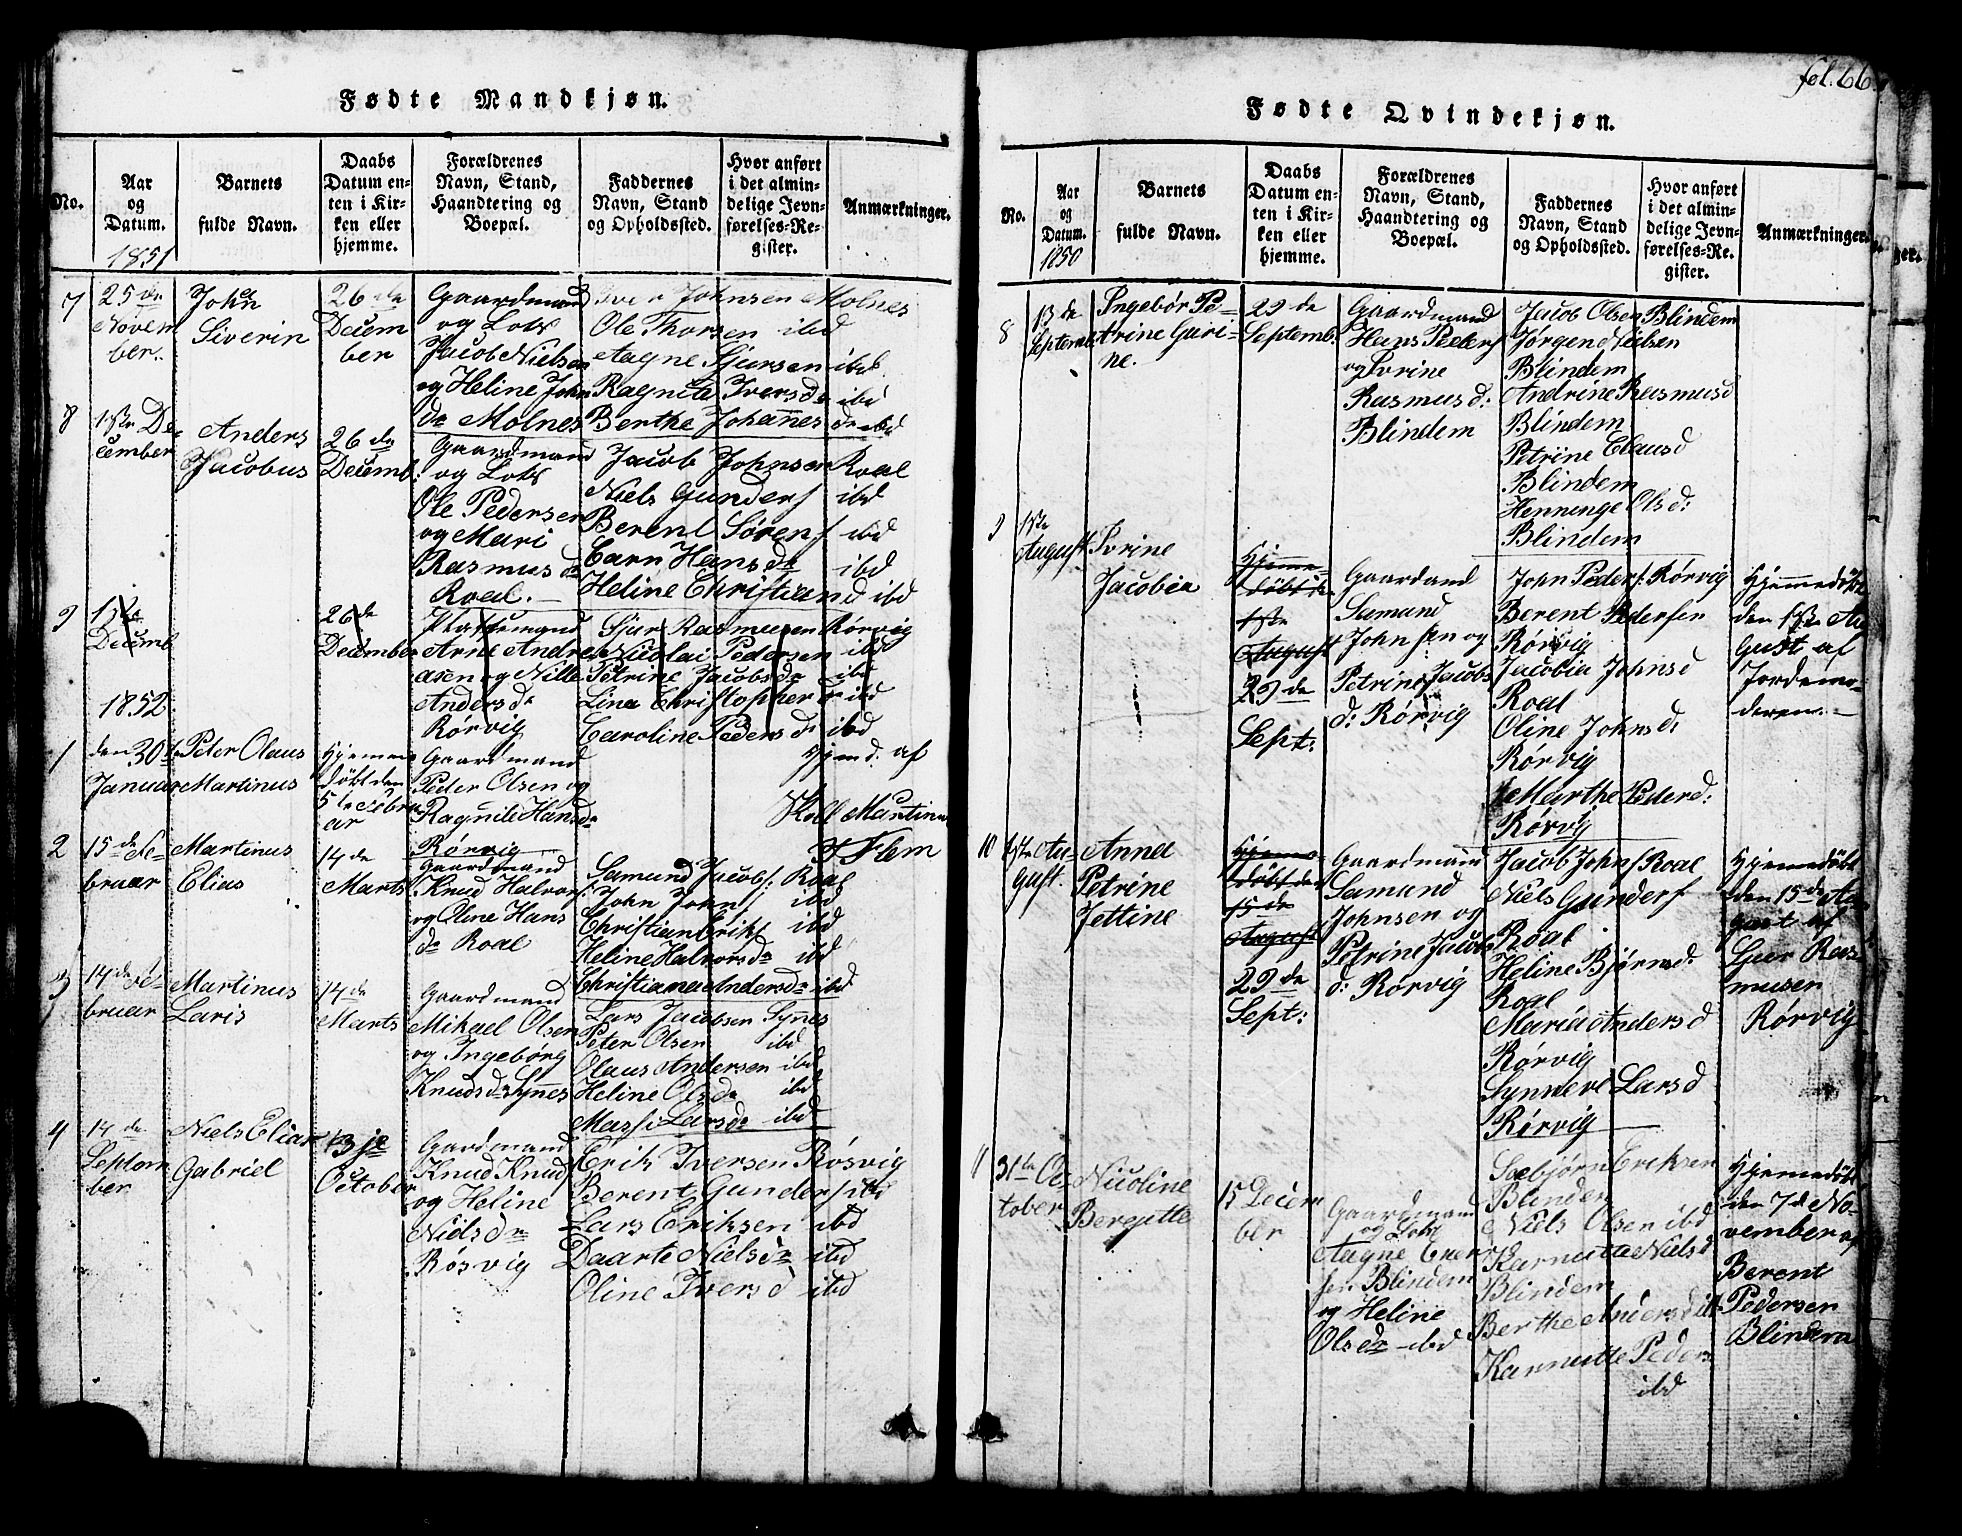 Fødte Mandkjøn.
No.
Aar
og
Datum.
1851
Barnets
fulde Navn.
Daabs
Datum en-
ten i Kir-
ken eller
hjemme.
Forældrenes
Navn, Stand,
Haandtering og
Boepæl.
Faddernes
Navn, Stand
og Opholdssted.
Hvor anført
i det almin-
delige Jevn-
førelses-Re-
gister.
Anmærkninger.
7
25de
Novem
ber.
John
Siverin
26de
Decem
ber
Gaardmand
og Lods
Jacob Nielsen
og Heline John
dr Molnes
Iver Johnsen Molnes
Ole Thorsen ibd
Aagne Sjursen ibd
Ragnile Iversdr ibd
Berthe Johannesdr ibd
8
1ste De-
cember
Anders
Jacobus
26de
Decemb:
Gaardmand
og Lods
Ole Pedersen
og Mari
Rasmusdr
Roal.
Jacob Johnsen Roal
Niels Gunders ibd
Berent Sørens ibd
Carn Hansdr ibd
Heline Christiand ibd
9
1ste
Decemb
26de
December
Pladsemand
Arne Andre
asen og Nille
Andersdr
Rørvig
Sjur Rasmusen Rørvig
Nicolai Pedersen ibd
Petrine Jacobsdr ibd
Lina Christopherdr ibd
Caroline Pedersdr ibd
1852
1
den 30te
Januar
Peter Olaus
Martinus
Hjemme
døbt den
5te Febru
ar
Gaardmand
Peder Olsen og
Ragnile Hansdr
Rørvig
Hjemd. af
Skoel Martinus
J Flem
2
15de Fe-
bruar
Martinus
Elias
14de
Marts
Gaardmand
Knud Halvors:
og Oline Hans
dr Roal
Samund Jacobs: Roal
John Johns ibd
Christian Eriks ibd
Heline Halvorsdr ibd
Christiana Andersdr ibd
3
14de Fe-
bruar
Martinus
Laris
14de
Marts
Gaardmand
Mikael Olsen
og Ingebørg
Knudsdr Synnes
Lars Jacobsen Synes
Peter Olsen ibd
Olaus Andersen ibd
Heline Olsdr ibd
Massi Larsdr ibd
4
14de
Septem
ber
Niels Elias
Gabriel
3je
October
Gaardmand
Knud Knuds
og Heline
Nielsdr
Røsvig
Erik Iversen Røsvig
Berent Gunders ibd
Lars Eriksen ibd
Daarte Nielsdr ibd
Oline Iversd ibd
fol. 66
Fødte Qvindekjøn.
No.
Aar
og
Datum.
1850
Barnets
fulde Navn.
Daabs
Datum en-
ten i Kir-
ken eller
hjemme.
Forældrenes
Navn, Stand,
Haandtering og
Boepæl.
Faddernes
Navn, Stand
og Opholdssted.
Hvor anført
i det almin-
delige Jevn-
førelses-Re-
gister.
Anmærkninger.
8
13de
Septemb:
Ingebør Pe-
trine Guri-
ne.
29de
Septemb:
Gaardmand
Hans Peders
og Ivrine
Rasmusd:
Blindem
Jacob Olsen Blindem
Jørgen Nielsen
Blindem
Andrine Rasmusd
Blindem
Petrine Clausd
Blindem
Henninge Olsd:
Blindem
9
1ste
August
Ivrine
Jacobia
Hjemme-
døbt de
1ste
August
29de
Sept:
Gaardand
Samund
Johnsen og
Petrine Jacobs
d: Rørvig
John Peders: Rørvig
Berent Pedersen
Rørvig
Jacobia Johnsd
Roal
Oline Johnsd:
Rørvig
Marthe Pederd:
Rørvig
Hjemmedøbt
den 1ste Au
gust af
Jordemo-
deren.
10
1ste Au-
gust.
Anna
Petrine
Jettine
Hjemme
døbt de
15de
August
29de
Sept:
Gaardmand
Samund
Johnsen og
Petrine Jacobs
d: Rørvig
Jacob Johns Roal
Niels Gunders
Roal
Heline Bjørnsd:
Roal
Maria Andersd
Rørvig
Synneve Larsd
Rørvig
Hjemedøbt
den 15de Au
gust af
Sjur Ras-
musen
Rørvig
11
31te Oc-
tober
Nicoline
Bergitte
15 Decem
ber
Gaardmand
og Lods
Aagne Iver
sen Blindem
og Heline
Olsdr ibd
Sæbjørn Eriksen
Blindem
Niels Olsen ibd
Karnutte Nielsd
Blindem
Berthe Andersd ib
Karnutte Peders
ibd
Hjemedøbt
den 7de No-
vember af
Berent
Pedersen
Blindem
ger.